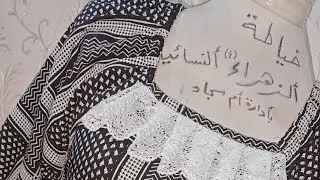 خياطة
الزهراء (ع) النسائية
بأدارة أم سجاد